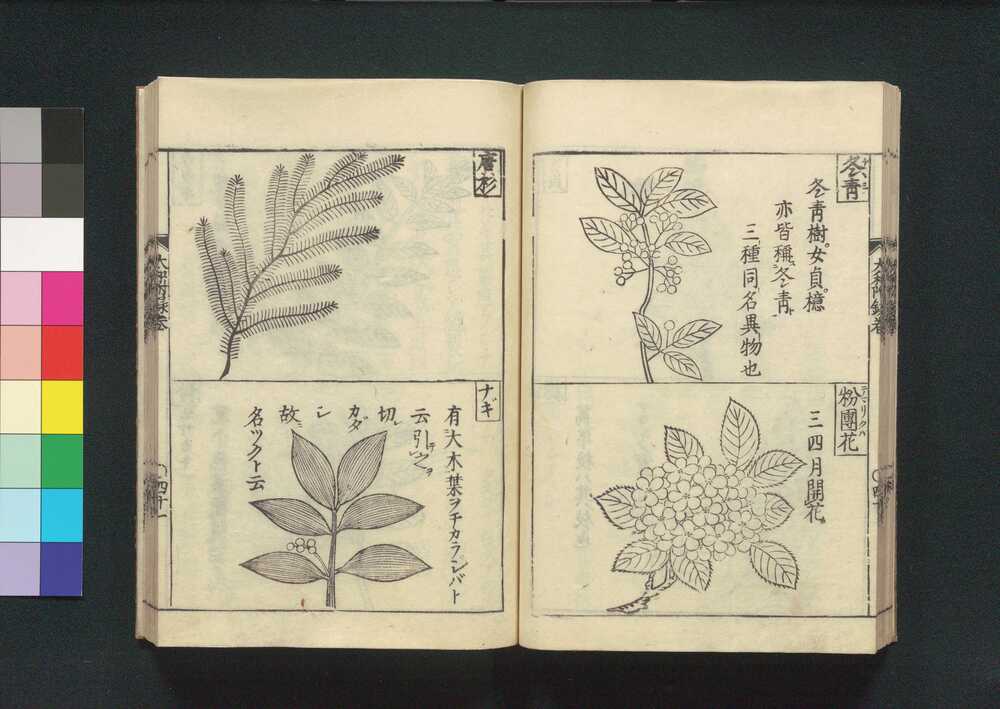 冬青
冬青樹女貞檍
亦皆稱冬青
三種同名異物也
粉團花
三四月開花
四十
唐杉
ナギ
有大木葉ヲチカランバト
云引
切
カダ
シ
故
名ツクト云
四十一